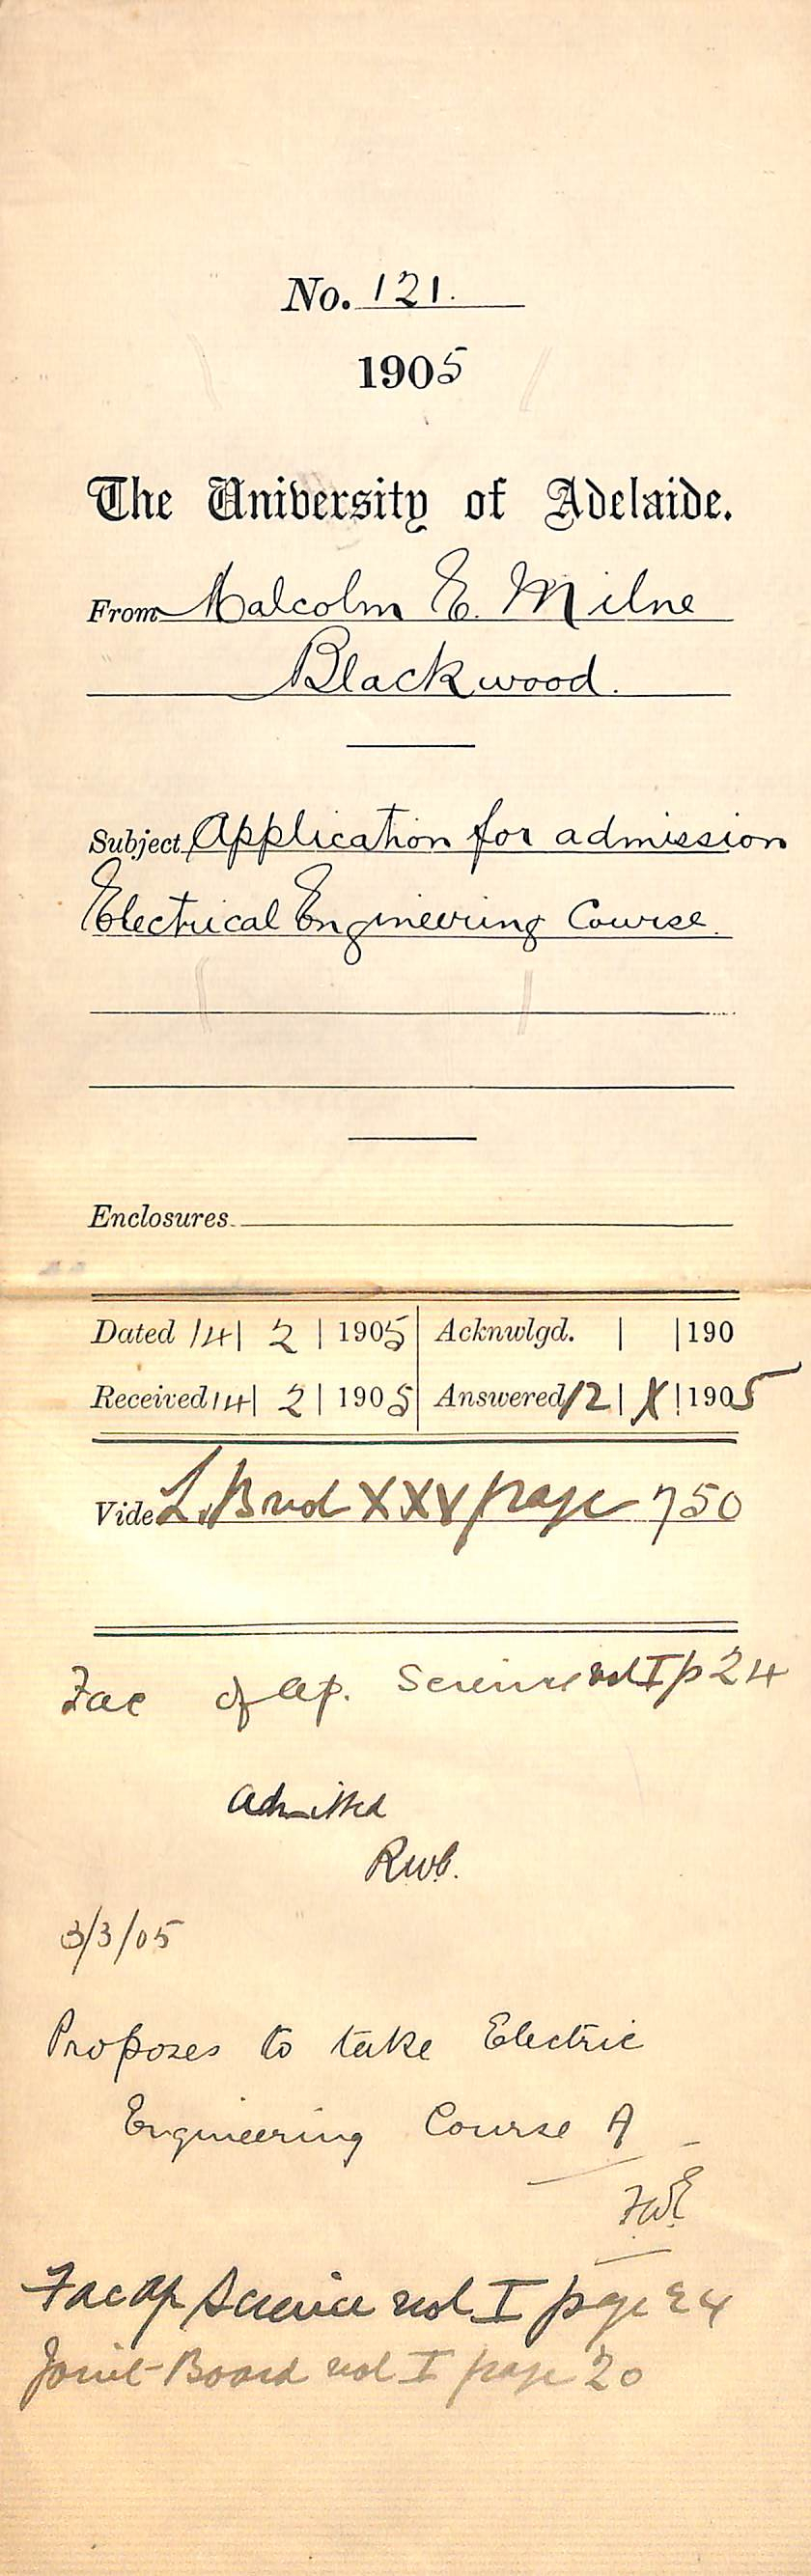 No. 121.
1905
The University of Adelaide.
From Malcolm E. Milne
Blackwood.
Subject Application for admission
Electrical Engineering Course.
Enclosures
Dated 14 | 2 | 1905 Acknwlgd. | | 190
Received 14 | 2 | 1905 Answered 12 | X | 1905
Vide L.B vol XXV page 750
Fac of ap. Science vol I p 24
Admitted
3/3/05
Proposes to take Electric
Engineering Course A
Fac ap Science vol I page 24
Joint Board vol I page 20